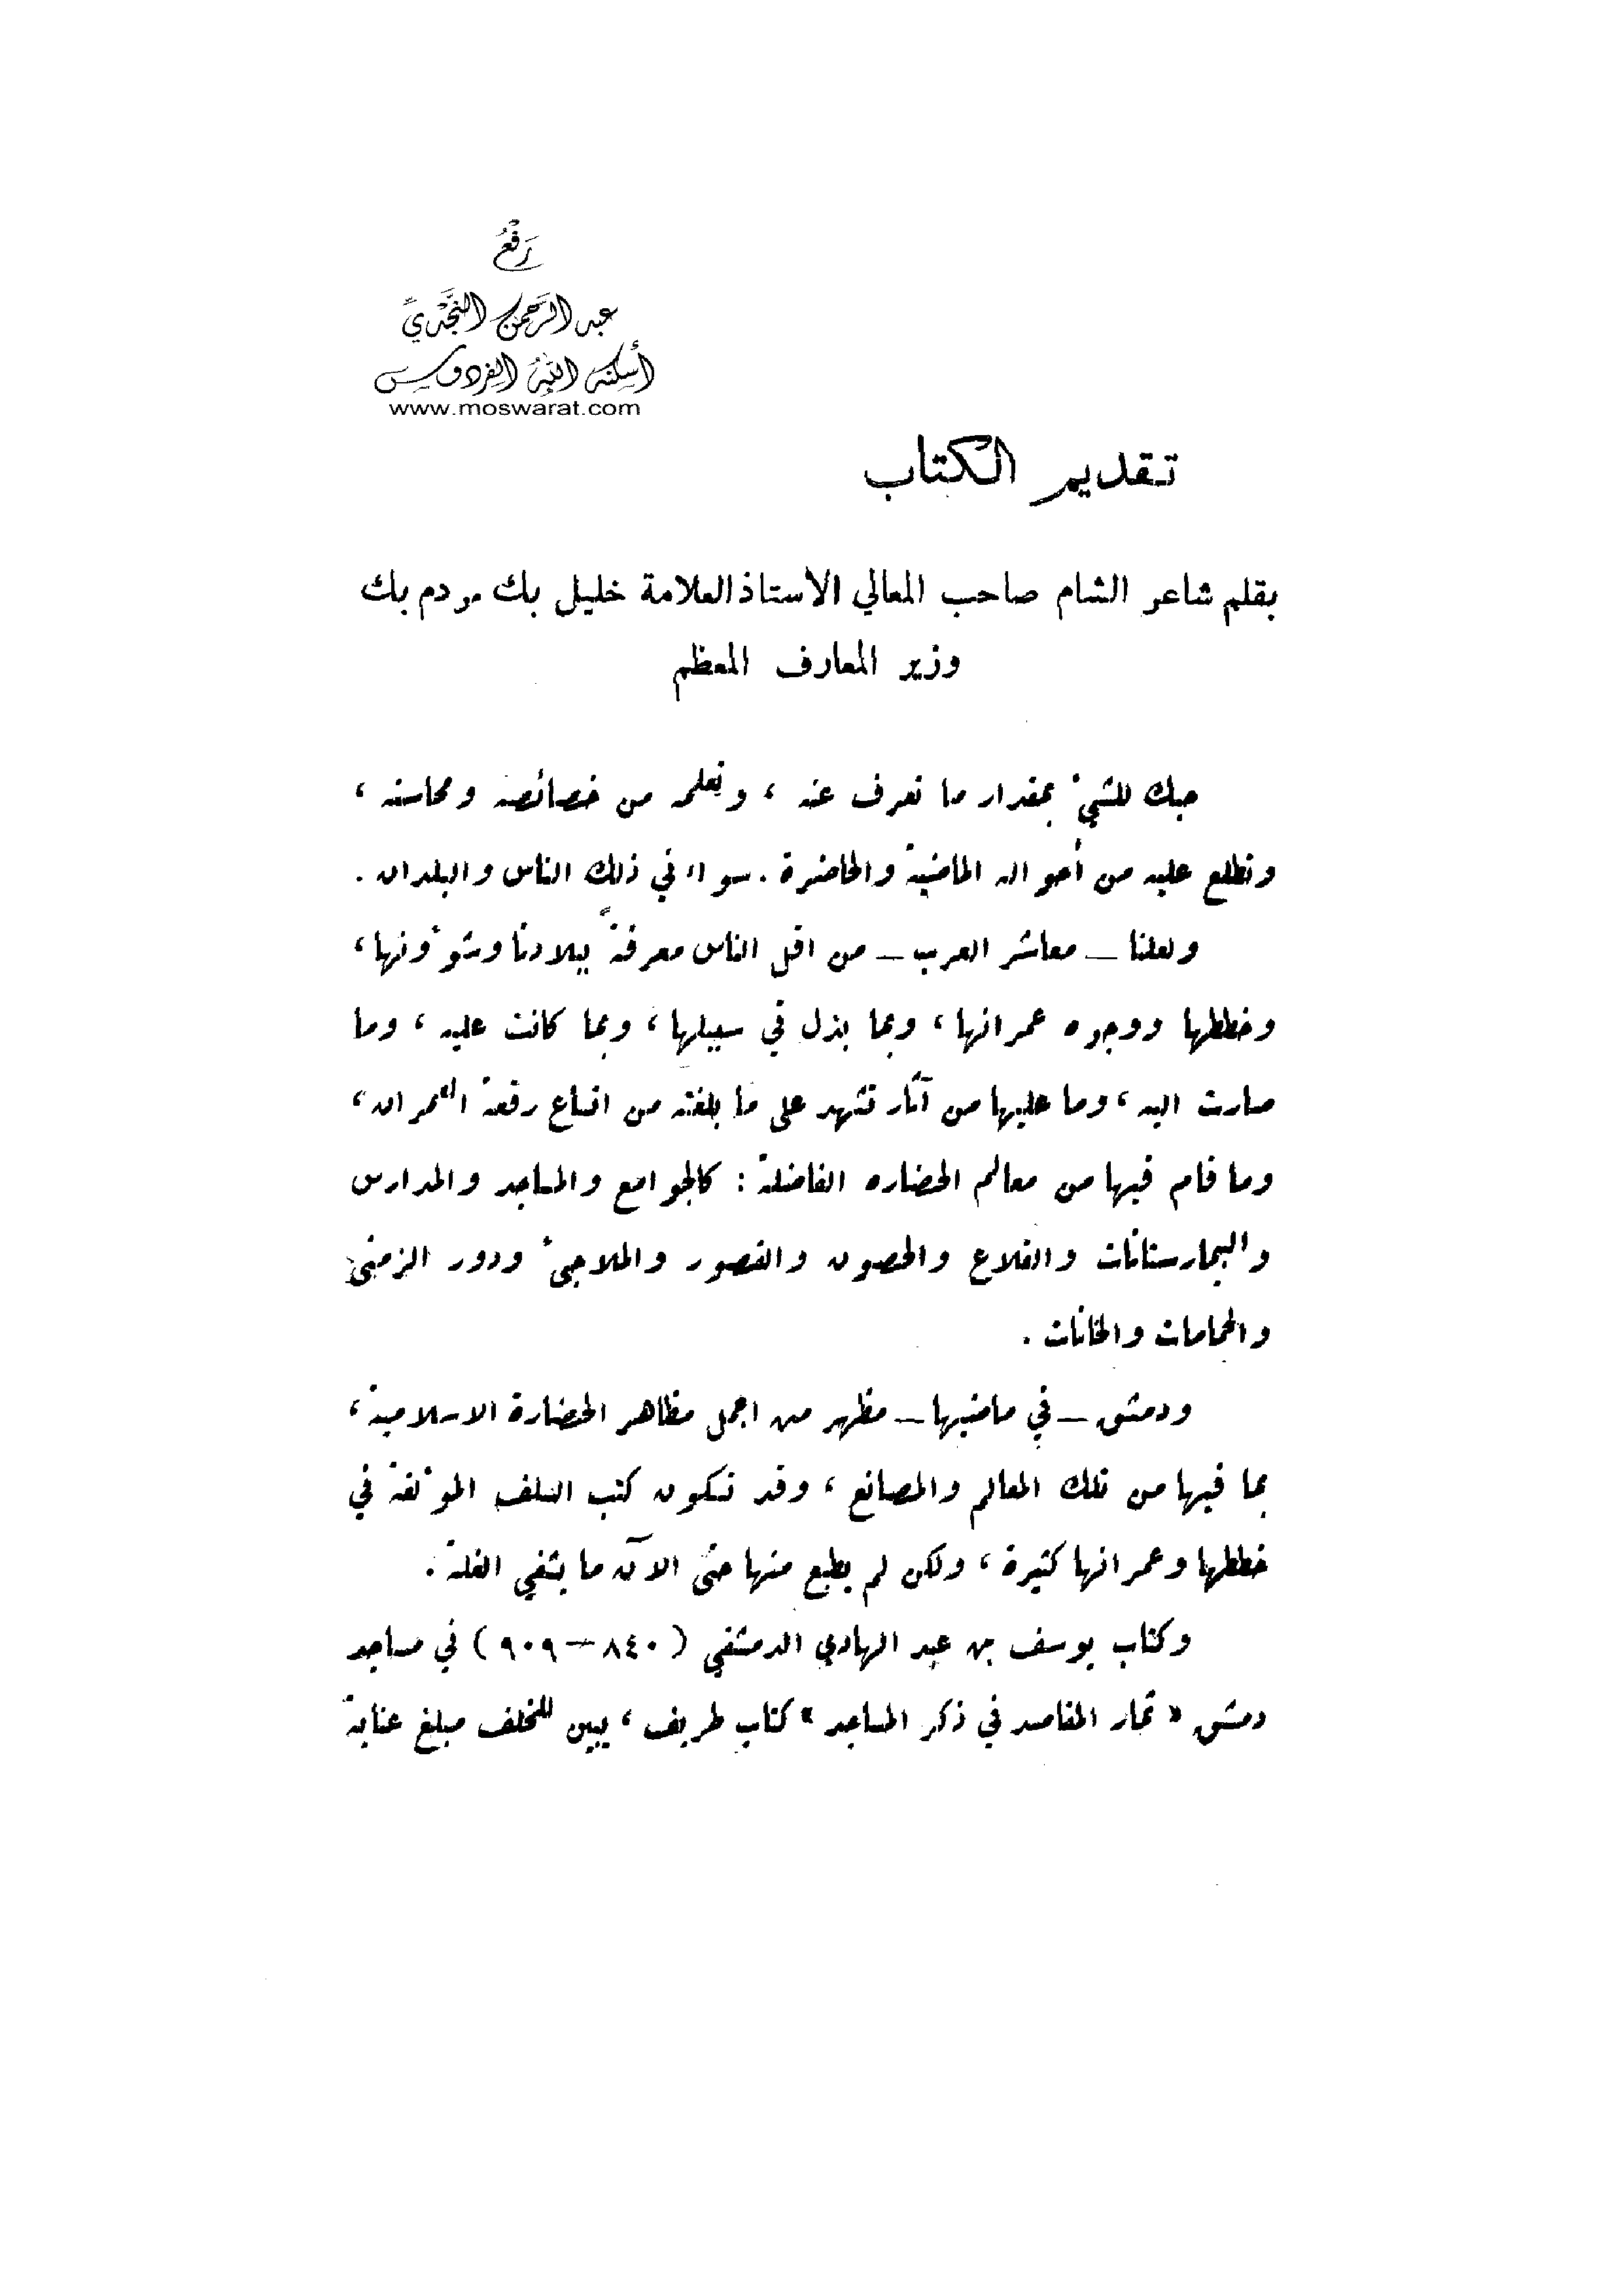 رَفْعُ
عبد الرَّحمن النَّجْديّ
أسكنه اللّه الفردوس
www.moswarat.com
تقديم الكتاب
بقلم شاعر الشام صاحب المعالي الاستاذ العلامة خليل بك مردم بك
وزير المعارف المعظم
حبك للشيء بمقدار ما تعرف عنه ، وتعلمه من خصائصه ومحاسنه ،
وتطلع عليه من أحواله الماضية والحاضرة . سواء في ذلك الناس والبلدان .
ولعلنا — معاشر العرب — من اقل الناس معرفةً ببلادنا وشؤونها ،
وخططها ووجوه عمرانها ، وبما بذل في سبيلها ، وبما كانت عليه ، وما
صارت اليه ، وما عليها من آثار تشهد على ما بلغته من اتساع رقعة العمران ،
وما قام فيها من معالم الحضاره الفاضلة : كالجوامع والمساجد والمدارس
والبيمارستانات والقلاع والحصون والقصور والملاجئ ودور الزمنى
والحمامات والخانات .
ودمشق — في ماضيها — مظهر من اجمل مظاهر الحضارة الاسلامية ،
بما فيها من تلك المعالم والمصانع ، وقد تكون كتب السلف المؤلفة في
خططها وعمرانها كثيرة ، ولكن لم يطبع منها حتى الآن ما يشفي الغلة .
وكتاب يوسف بن عبد الهادي الدمشقي ( ٨٤٠ — ٩٠٩ ) في مساجد
دمشق « ثمار المقاصد في ذكر المساجد » كتاب طريف ، يبين للخلف مبلغ عناية